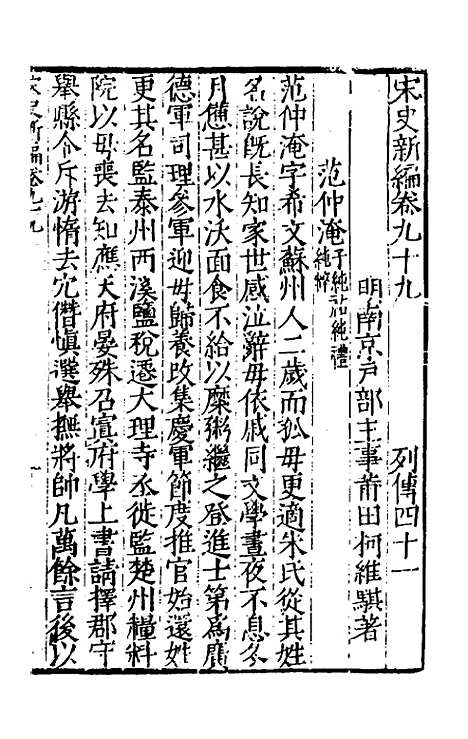 宋史新編卷九十九 列傳四十一
明南京戸部主事莆田柯維騏著
范仲淹子純祐純禮
純粹
范仲淹字希文蘇州人二歲而孤母更適朱氏從其姓
名說既長知家世感泣辭母依戚同文學晝夜不息冬
月憊甚以水沃面食不給以糜粥繼之登進士第爲廣
德軍司理參軍迎母歸養改集慶軍節度推官始還姓
更其名監泰州西溪鹽稅遷大理寺丞徙監楚州糧料
院以母喪去知應天府晏殊召寘府學上書請擇郡守
舉縣令斥游惰去冗僭慎選舉撫將帥凡萬餘言後以
宋史新編卷九十九